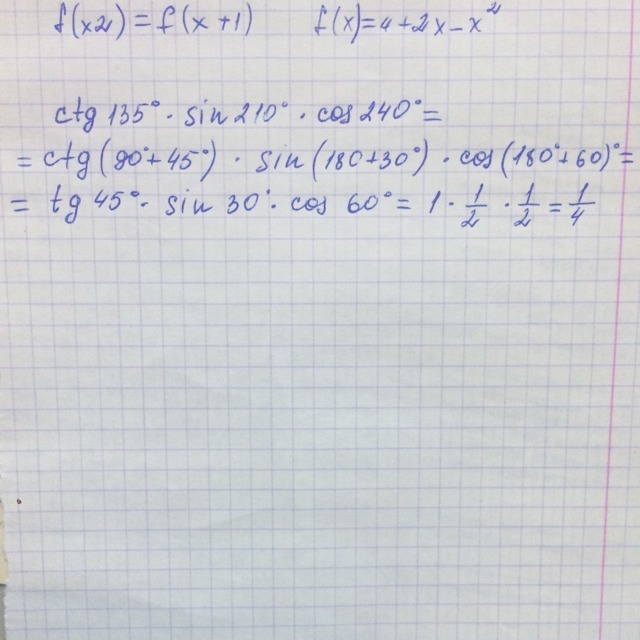 f(x2) = f(x+1) f(x)=4+2x-x²
ctg 135° · sin 210° · cos 240° =
= ctg(90°+45°) · sin(180+30°) · cos(180°+60)° =
= tg 45° · sin 30° · cos 60° = 1 · 1/2 · 1/2 = 1/4